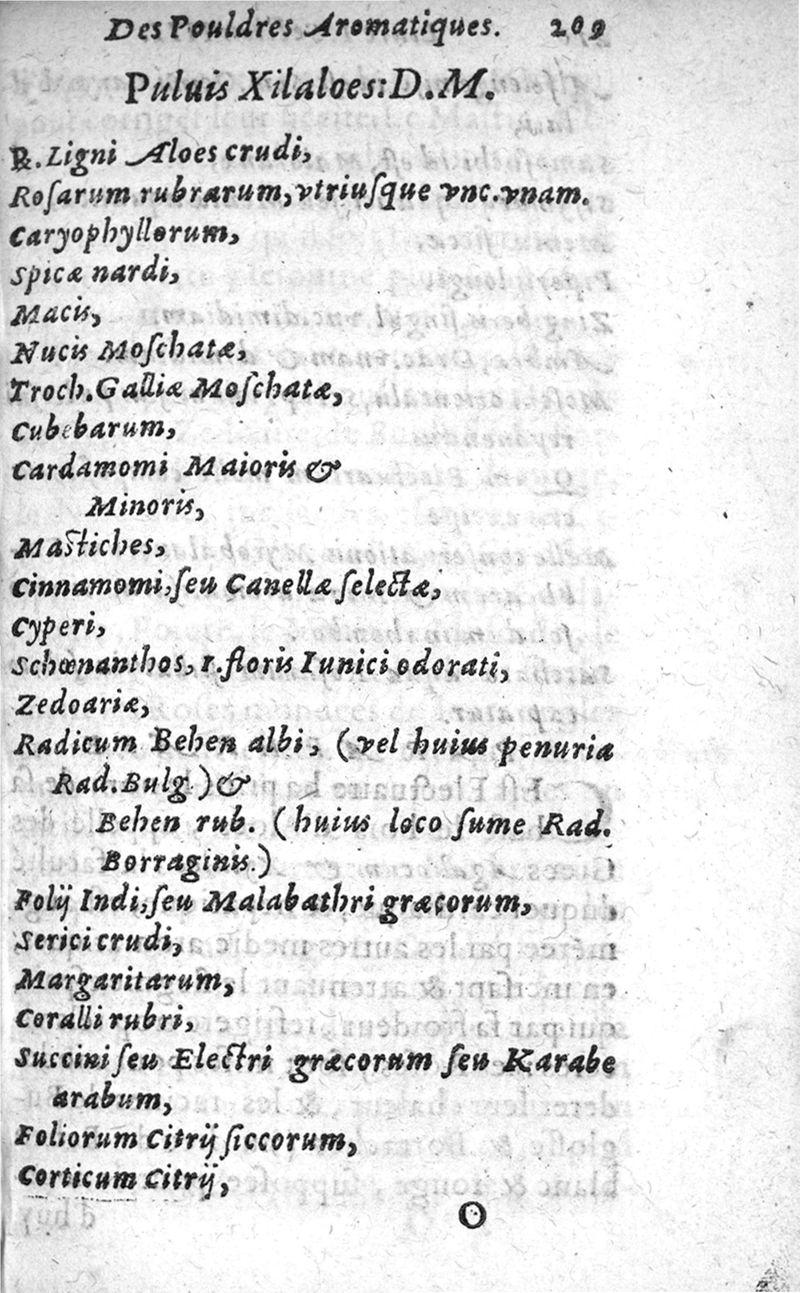 Des Pouldres Aromatiques. 209
Puluis Xilaloes: D. M.
℞. Ligni Aloes crudi,
Roſarum rubrarum, vtriuſque vnc. vnam.
Caryophyllorum,
Spicæ nardi,
Macis,
Nucis Moſchatæ,
Troch. Galliæ Moſchatæ,
Cubebarum,
Cardamomi Maioris &
Minoris,
Maſtiches,
Cinnamomi, ſeu Canellæ ſelectæ,
Cyperi,
Schœnanthos, 1. floris Iunici odorati,
Zedoariæ,
Radicum Behen albi, (vel huius penuria
Rad. Bulg.) &
Behen rub. (huius loco ſume Rad.
Borraginis.)
Folij Indi, ſeu Malabathri græcorum,
Serici crudi,
Margaritarum,
Coralli rubri,
Succini ſeu Electri græcorum ſeu Karabe
arabum,
Foliorum Citrij ſiccorum,
Corticum Citrij,
O